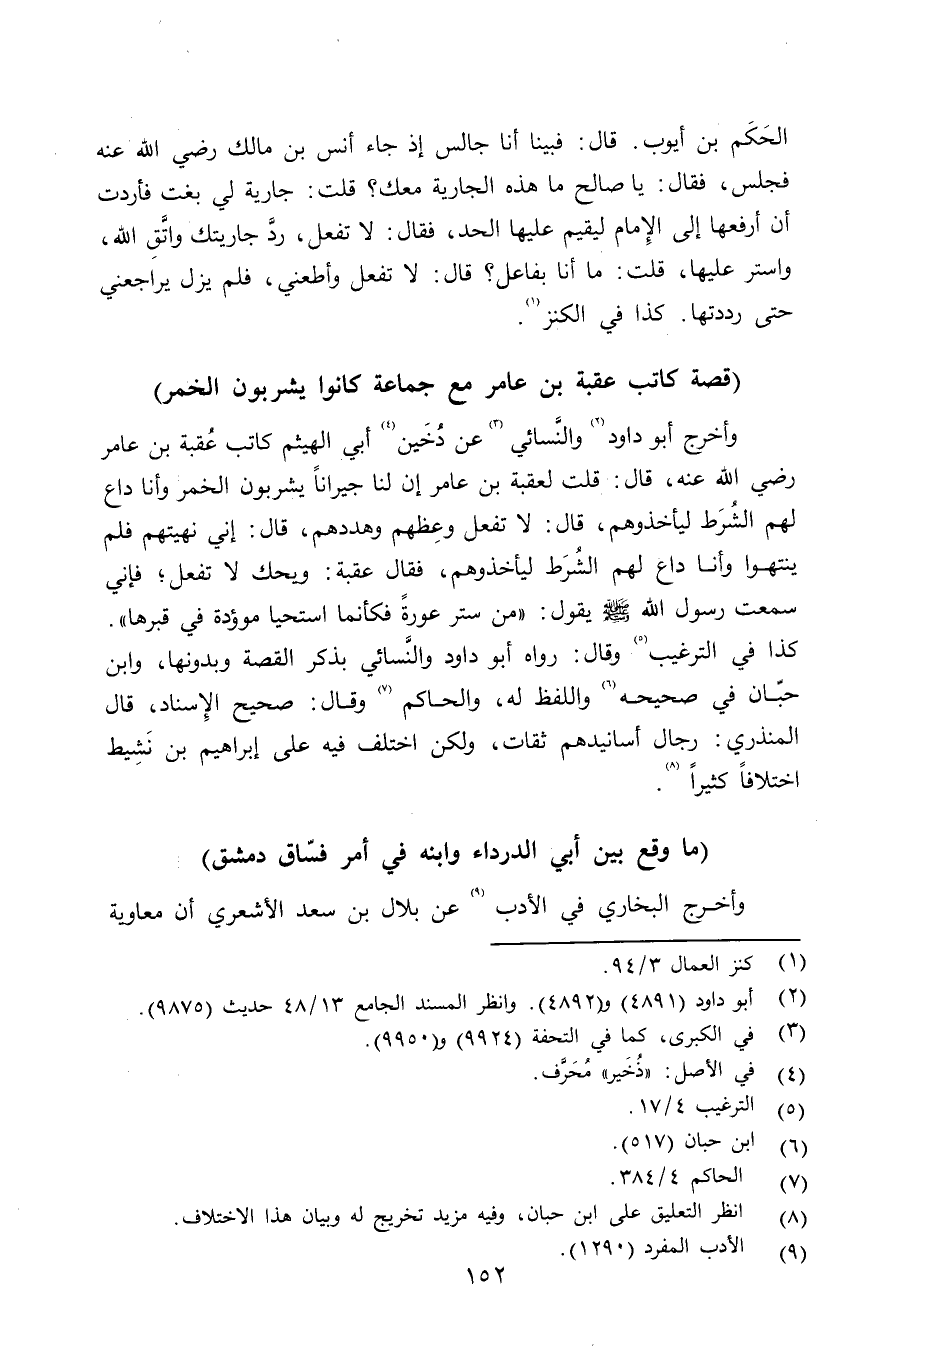 الحَكَم بن أيوب. قال: فبينا أنا جالس إذ جاء أنس بن مالك رضي الله عنه
فجلس، فقال: يا صالح ما هذه الجارية معك؟ قلت: جارية لي بغت فأردت
أن أرفعها إلى الإِمام ليقيم عليها الحد، فقال: لا تفعل، ردَّ جاريتك واتَّقِ الله،
واستر عليها، قلت: ما أنا بفاعل؟ قال: لا تفعل وأطعني، فلم يزل يراجعني
حتى رددتها. كذا في الكنز(١).
(قصة كاتب عقبة بن عامر مع جماعة كانوا يشربون الخمر)
وأخرج أبو داود(٢) والنَّسائي(٣) عن دُخَين(٤) أبي الهيثم كاتب عُقبة بن عامر
رضي الله عنه، قال: قلت لعقبة بن عامر إن لنا جيراناً يشربون الخمر وأنا داع
لهم الشُرَط ليأخذوهم، قال: لا تفعل وعِظهم وهددهم، قال: إني نهيتهم فلم
ينتهوا وأنا داع لهم الشُرَط ليأخذوهم، فقال عقبة: ويحك لا تفعل؛ فإني
سمعت رسول الله ﷺ يقول: «من ستر عورةً فكأنما استحيا موؤدة في قبرها».
كذا في الترغيب(٥) وقال: رواه أبو داود والنَّسائي بذكر القصة وبدونها، وابن
حبّان في صحيحه(٦) واللفظ له، والحاكم(٧) وقال: صحيح الإِسناد، قال
المنذري: رجال أسانيدهم ثقات، ولكن اختلف فيه على إبراهيم بن نَشِيط
اختلافاً كثيراً(٨).
(ما وقع بين أبي الدرداء وابنه في أمر فسّاق دمشق)
وأخرج البخاري في الأدب(٩) عن بلال بن سعد الأشعري أن معاوية
(١) كنز العمال ٩٤/٣.
(٢) أبو داود (٤٨٩١) و(٤٨٩٢). وانظر المسند الجامع ٤٨/١٣ حديث (٩٨٧٥).
(٣) في الكبرى، كما في التحفة (٩٩٢٤) و(٩٩٥٠).
(٤) في الأصل: «ذُخَير» مُحَرَّف.
(٥) الترغيب ١٧/٤.
(٦) ابن حبان (٥١٧).
(٧) الحاكم ٣٨٤/٤.
(٨) انظر التعليق على ابن حبان، وفيه مزيد تخريج له وبيان هذا الاختلاف.
(٩) الأدب المفرد (١٢٩٠).
١٥٢